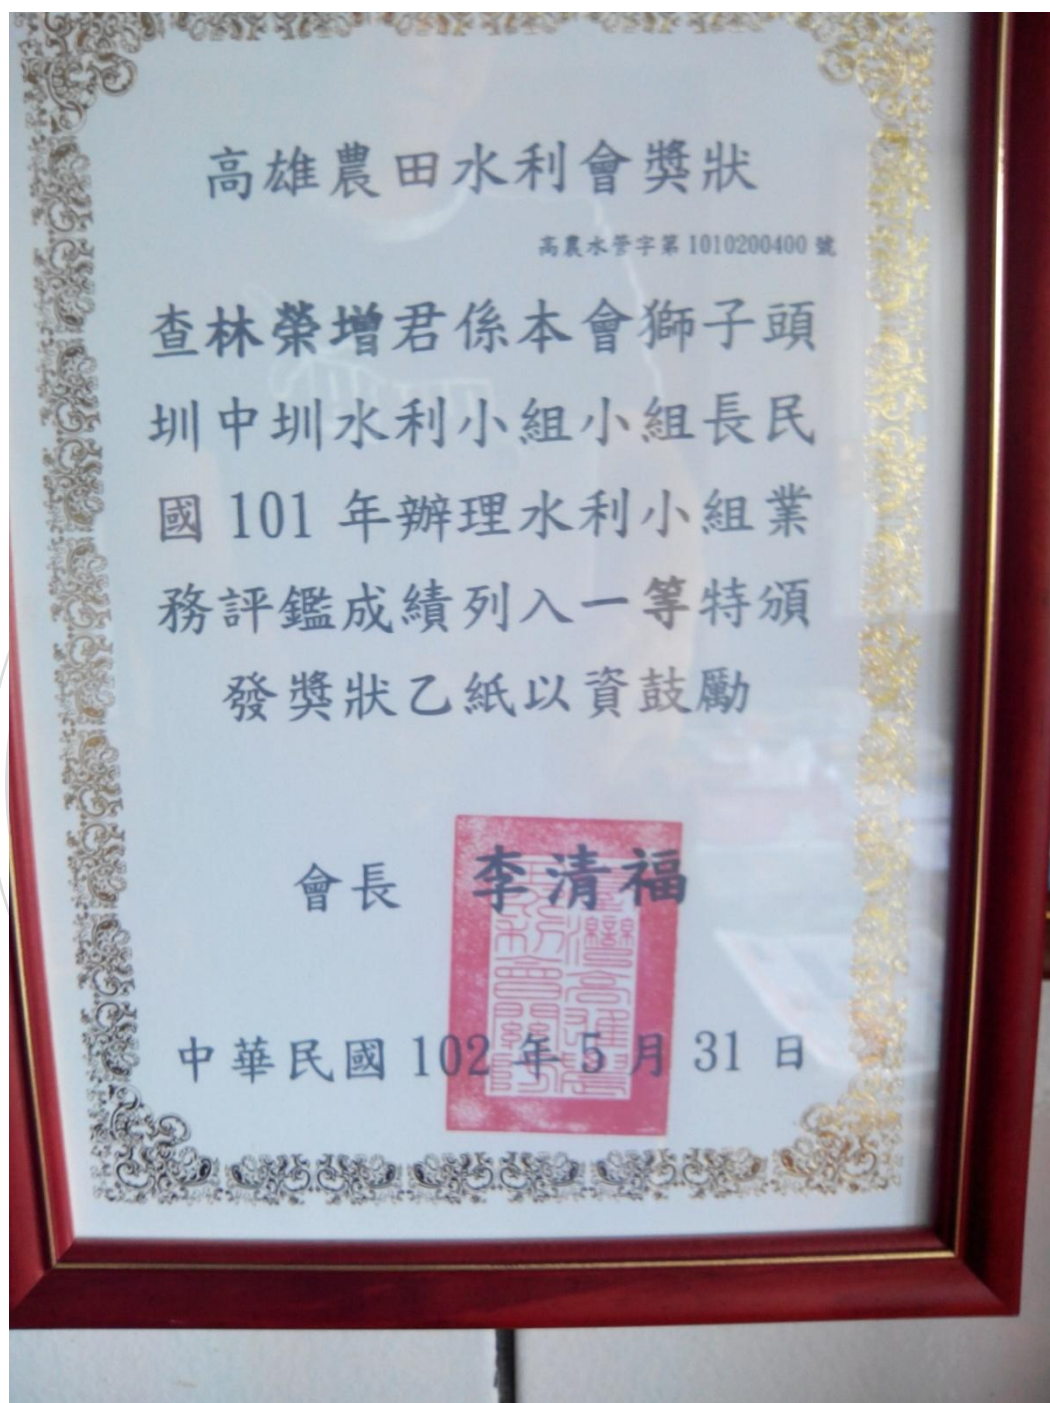 高雄農田水利會獎狀
高農水管字第1010200400號
查林榮增君係本會獅子頭
圳中圳水利小組小組長民
國 101 年辦理水利小組業
務評鑑成績列入一等特頒
發獎狀乙紙以資鼓勵
會長 李清福
臺灣高雄農田水利會關防
中華民國 102 年 5 月 31 日